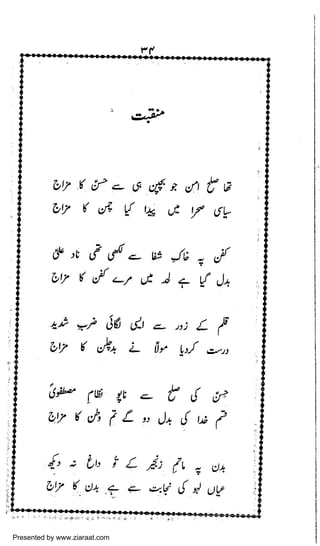 ۳۴
منقبت
تھا صلح امن جو بچپن ہی سے حسنؑ کا مزاج
سیاسی صحرا میں پیدا کیا چمن کا مزاج
کفن پہ خاکِ شفا سے لکھی تھی نادِ علیؑ
بدل گیا ہے لحد میں مرے کفن کا مزاج
قلم کے زور سے ایسی لگائی ضرب شدید
درست کردیا مولاؑ نے بدچلن کا مزاج
حسنؑ کی صلح سے ناپو نظامِ مصطفویؐ
قسم خدا کی بدل دو گے تم وطن کا مزاج
بدن پہ ماتمِ زنجیر کے تُو داغ نہ دیکھ
عیاں لہو کی نجابت سے ہے بدن کا مزاج
Presented by www.ziaraat.com